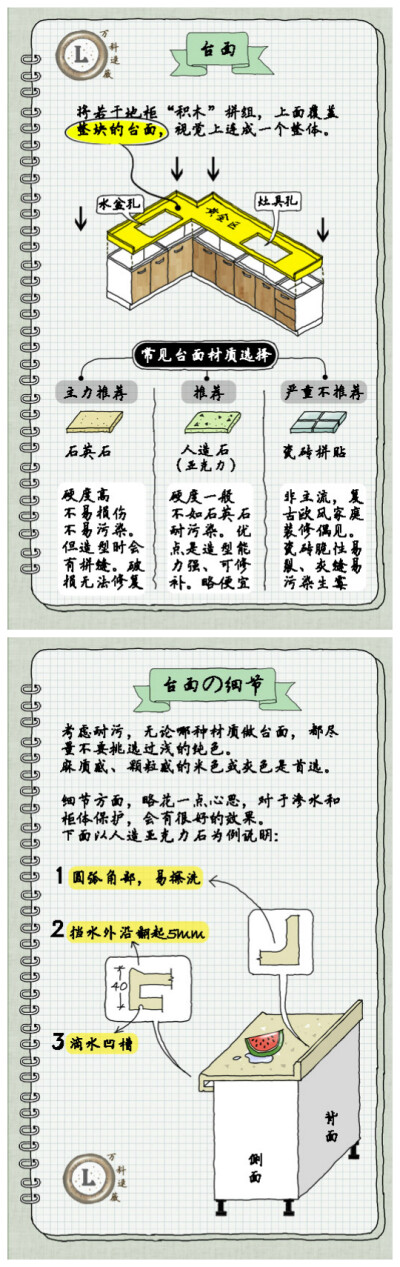 万科速最
L
台面
将若干地柜“积木”拼组，上面覆盖
整块的台面，视觉上连成一个整体。
水盆孔
黄金区
灶具孔
常见台面材质选择
主力推荐
推荐
严重不推荐
石英石
人造石
(亚克力)
瓷砖拼贴
硬度高
不易损伤
不易污染。
但造型时会
有拼缝。破
损无法修复
硬度一般
不如石英石
耐污染。优
点是造型能
力强、可修
补。略便宜
非主流，复
古欧风家庭
装修偶见。
瓷砖脆性易
裂、灰缝易
污染生霉
台面の细节
考虑耐污，无论哪种材质做台面，都尽
量不要挑选过浅的纯色。
麻质感、颗粒感的米色或灰色是首选。
细节方面，略花一点心思，对于渗水和
柜体保护，会有很好的效果。
下面以人造亚克力石为例说明：
1 圆弧角部，易擦洗
2 挡水外沿翻起5mm
40
3 滴水凹槽
背面
侧面
L